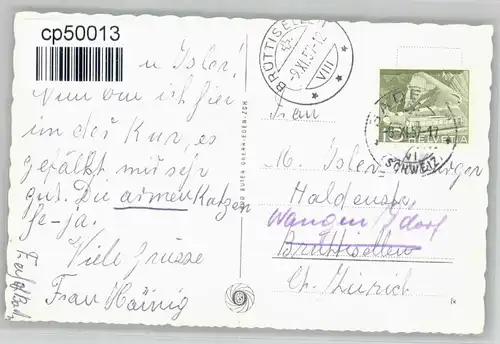 cp50013
u Isler!
Nun bin ich hier
in der Kur, es
gefällt mir sehr
gut. Die armen Katzen
je-ja.
Viele Grüsse
Frau Hönig
BRÜTTISELLEN
-9.XI.57-12
VIII
HELVETIA
(SCHWEIZ)
Frau
M. Isler
Haldenstr.
Wangen / Ddorf
Brüttisellen
Ct. Zürich